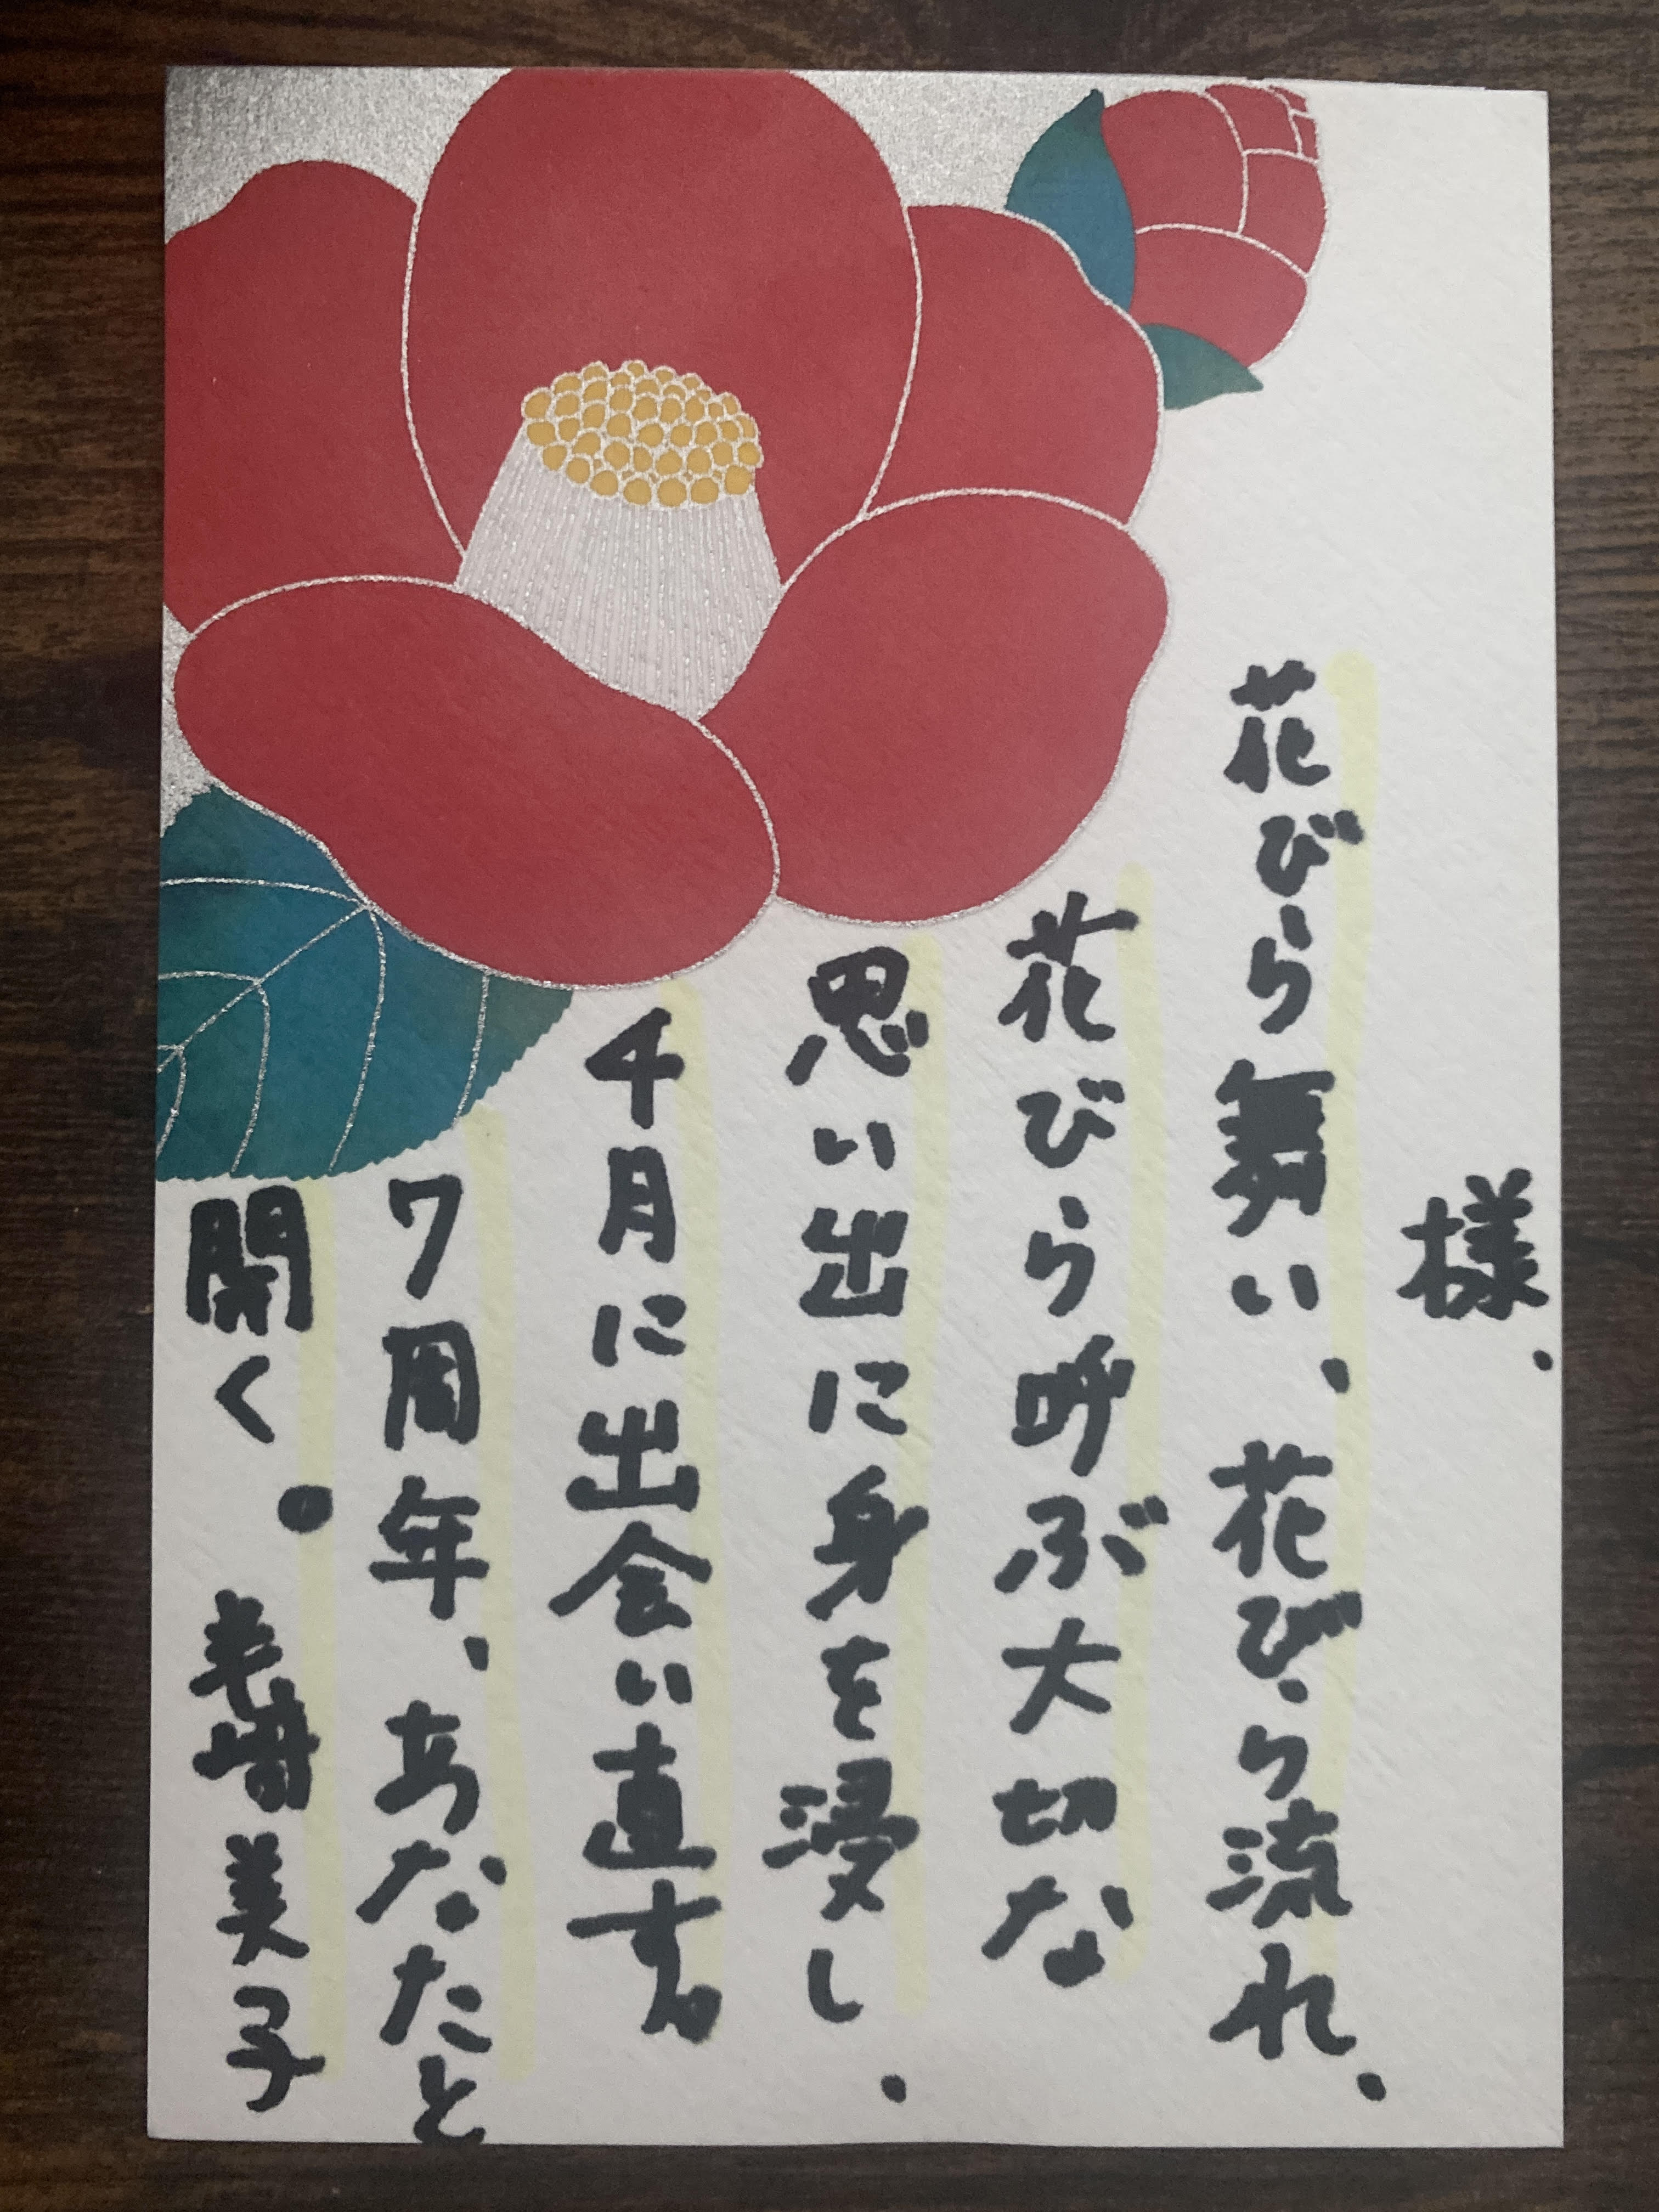 様、
花びら舞い、花びら流れ、
花びら呼ぶ大切な
思い出に身を浸し、
4月に出会い直す。
7周年、あなたと
開く。 美子